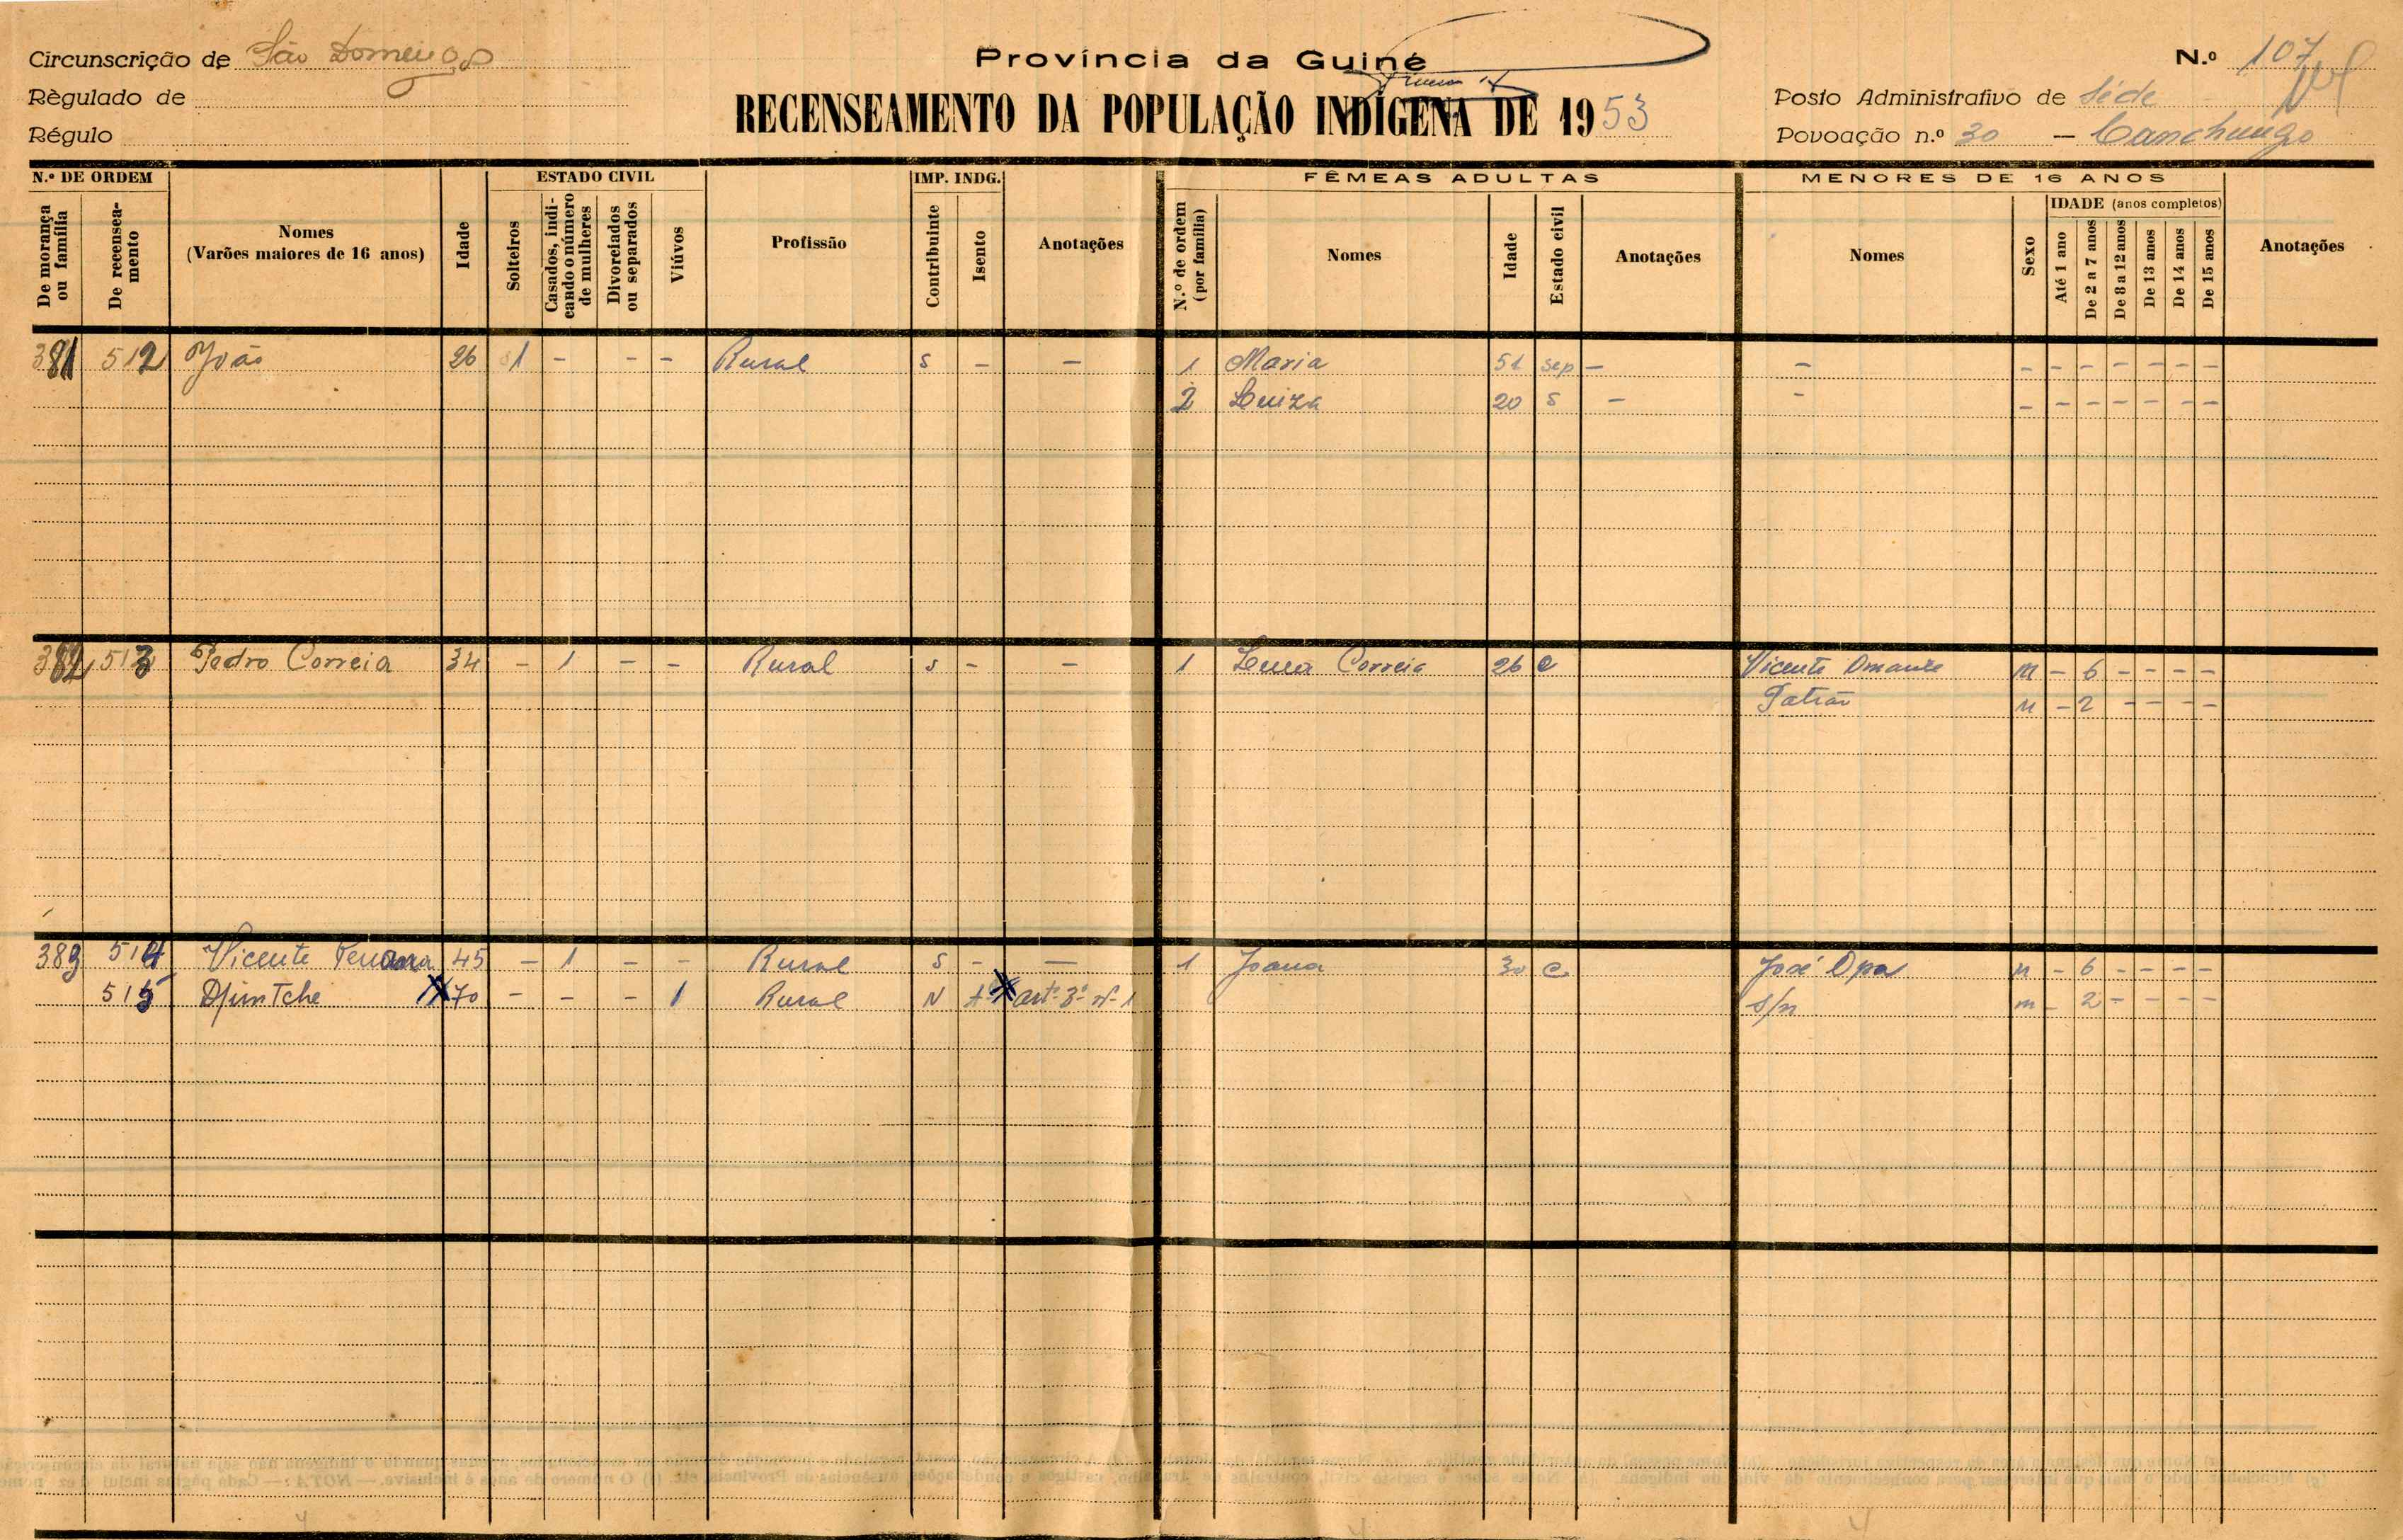 Circunscrição de São Domingos
Règulado de
Régulo
Província da Guiné
RECENSEAMENTO DA POPULAÇÃO INDÍGENA DE 1953
N.º 107
Posto Administrativo de Séde
Povoação n.º 30 — Canchungo
N.º DE ORDEM
De morança ou família
De recenseamento
Nomes
(Varões maiores de 16 anos)
Idade
ESTADO CIVIL
Solteiros
Casados, indicando o número de mulheres
Divorciados ou separados
Viúvos
Profissão
IMP. INDG.
Contribuinte
Isento
Anotações
FÊMEAS ADULTAS
N.º de ordem (por família)
Nomes
Idade
Estado civil
Anotações
MENORES DE 16 ANOS
Nomes
Sexo
IDADE (anos completos)
Até 1 ano
De 2 a 7 anos
De 8 a 12 anos
De 13 anos
De 14 anos
De 15 anos
Anotações
381 512 João 26 1 - - - Rural S - - 1 Maria 51 sep - - - - - - - - -
2 Luiza 20 S - - - - - - - - -
382 513 Pedro Correia 34 - 1 - - Rural S - - 1 Correia 26 C Vicente M - 6 - - - -
Patrão M - 2 - - - -
383 514 Vicente 45 - 1 - - Rural S - - 1 Joana 30 C. José Opa M - 6 - - - -
515 Djintche X 70 - - - 1 Rural N X artº 3º nº 1 S/n M - 2 - - - -